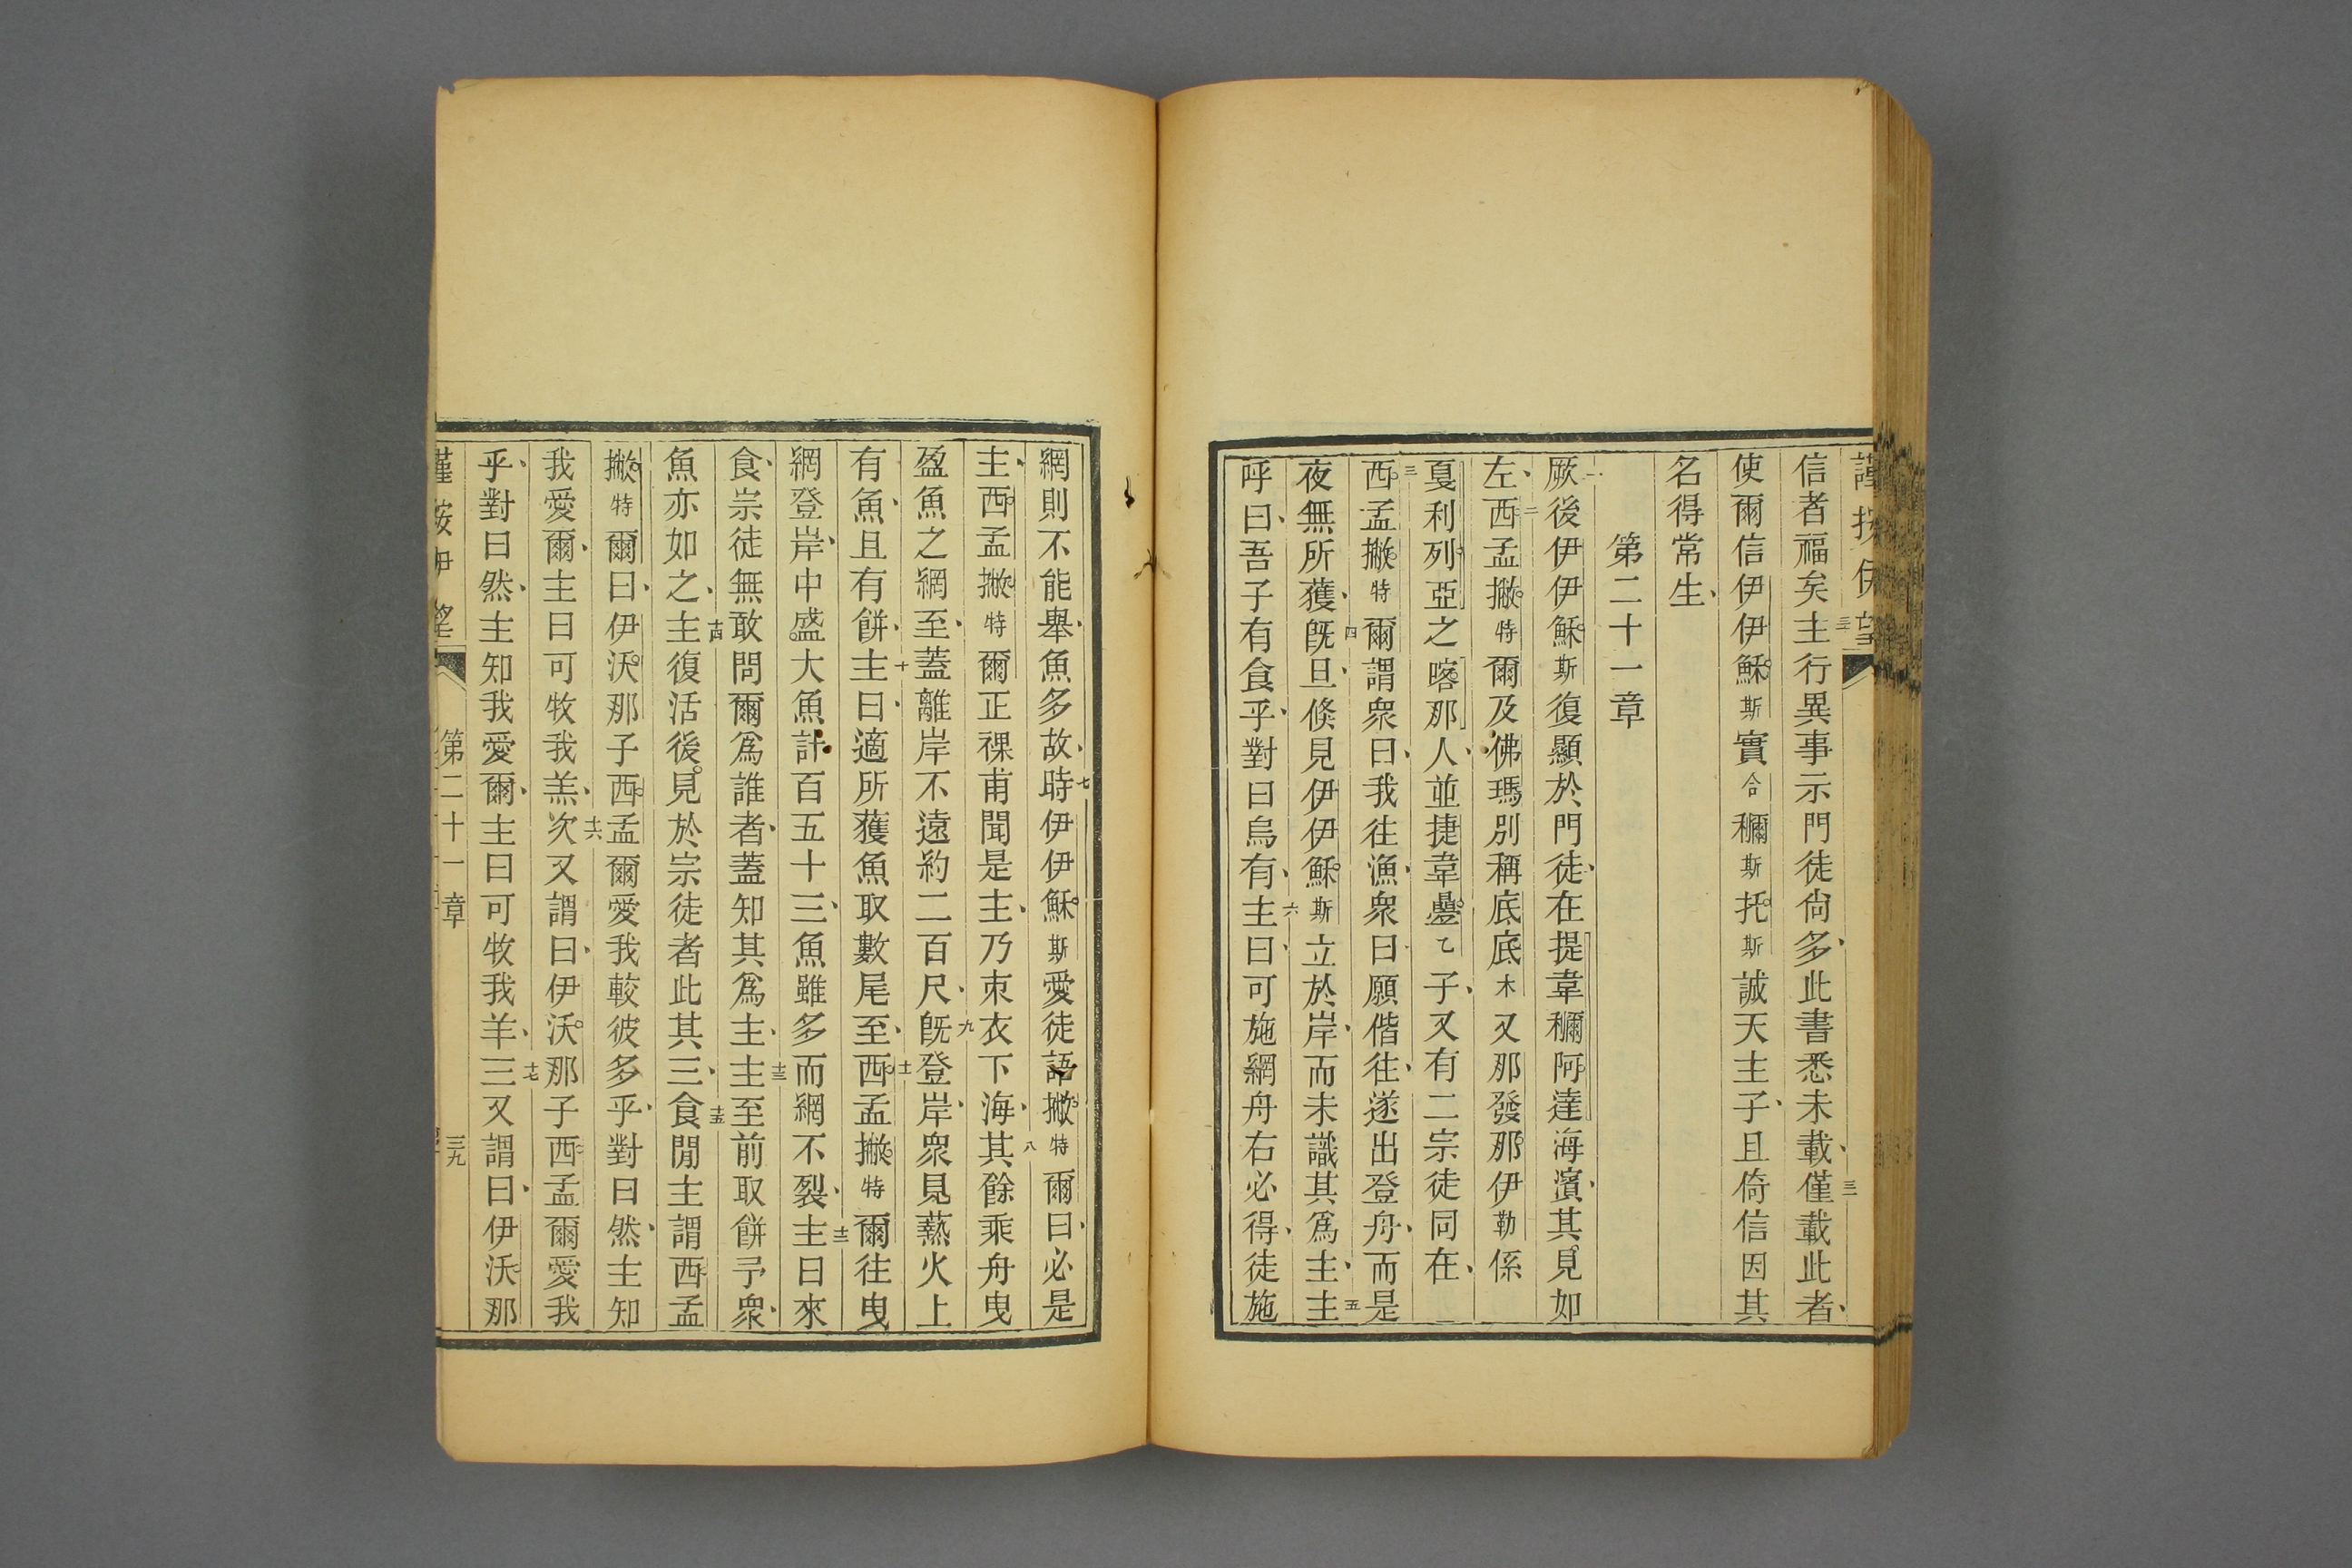 信者福矣三十主行異事示門徒尙多此書悉未載三一僅載此者
使爾信伊伊穌斯實合穪斯托斯誠天主子且倚信因其
名得常生
第二十一章
一厥後伊伊穌斯復顯於門徒在提韋穪阿達海濱其見如
左二西孟撇特爾及佛瑪別稱底底木又那發那伊勒係
戛利列亞之喀那人並捷韋疊乙子又有二宗徒同在
三西孟撇特爾謂衆曰我往漁衆曰願偕往遂出登舟而是
夜無所獲四旣旦倐見伊伊穌斯立於岸而未識其爲主五主
呼曰吾子有食乎對曰烏有六主曰可施網舟右必得徒施
網則不能舉魚多故七時伊伊穌斯愛徒語撇特爾曰必是
主西孟撇特爾正裸甫聞是主乃朿衣下海八其餘乘舟曳
盈魚之網至蓋離岸不遠約二百尺九旣登岸衆見爇火上
有魚且有餅十主曰適所獲魚取數尾至十一西孟撇特爾往曳
網登岸中盛大魚計百五十三魚雖多而網不裂十二主曰來
食宗徒無敢問爾爲誰者蓋知其爲主十三主至前取餅予衆
魚亦如之十四主復活後見於宗徒者此其三十五食閒主謂西孟
撇特爾曰伊沃那子西孟爾愛我較彼多乎對曰然主知
我愛爾主曰可牧我羔十六次又謂曰伊沃那子西孟爾愛我
乎對曰然主知我愛爾主曰可牧我羊十七三又謂曰伊沃那
第二十一章 三九